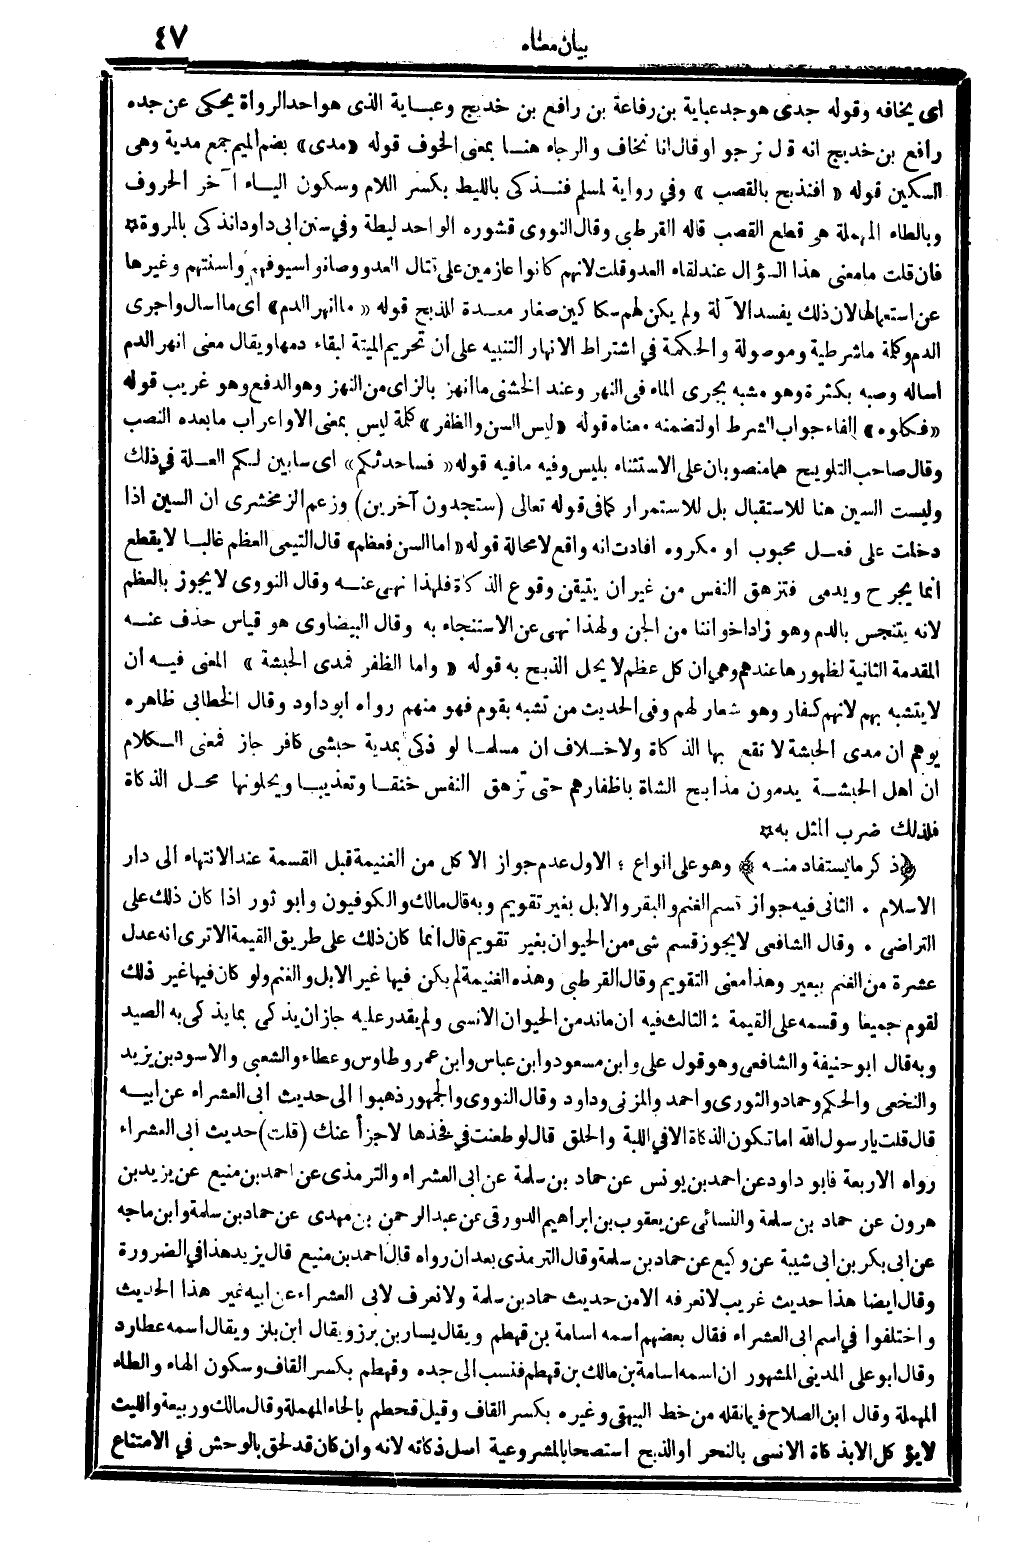 بيان معناه ٤٧
اى يخافه وقوله جدى هو جد عباية بن رفاعة بن رافع بن خديج وعباية الذى هو احد الرواة يحكى عن جده
رافع بن خديج انه قال نرجو او قال انا نخاف والرجاء هنا بمعنى الخوف قوله «مدى» بضم الميم جمع مدية وهى
السكين قوله «افنذبح بالقصب» وفي رواية لمسلم فنذكى بالليط بكسر اللام وسكون الياء آخر الحروف
وبالطاء المهملة هو قطع القصب قاله القرطبى وقال النووى قشوره الواحد ليطة وفي سنن ابى داود انذكى بالمروة ✡
فان قلت ما معنى هذا السؤال عند لقاء العدو قلت لانهم كانوا عازمين على قتال العدو وصانوا سيوفهم واسنتهم وغيرها
عن استعمالها لان ذلك يفسد الآلة ولم يكن لهم سكاكين صغار معدة للذبح قوله «ما انهر الدم» اى ما اسال واجرى
الدم وكلمة ما شرطية وموصولة والحكمة في اشتراط الانهار التنبيه على ان تحريم الميتة لبقاء دمها ويقال معنى انهر الدم
اساله وصبه بكثرة وهو مشبه بجرى الماء فى النهر وعند الخشنى ما انهز بالزاى من النهز وهو الدفع وهو غريب قوله
«فكلوه» الفاء جواب الشرط او لتضمنه معناه قوله «ليس السن والظفر» كلمة ليس بمعنى الا واعراب ما بعده النصب
وقال صاحب التلويح هما منصوبان على الاستثناء بليس وفيه ما فيه قوله «فسأحدثكم» اى سابين لكم العلة في ذلك
وليست السين هنا للاستقبال بل للاستمرار كما فى قوله تعالى (ستجدون آخرين) وزعم الزمخشرى ان السين اذا
دخلت على فعل محبوب او مكروه افادت انه واقع لا محالة قوله «اما السن فعظم» قال التيمى العظم غالبا لا يقطع
انما يجرح ويدمى فتزهق النفس من غير ان يتيقن وقوع الذكاة فلهذا نهى عنه وقال النووى لا يجوز بالعظم
لانه يتنجس بالدم وهو زاد اخواننا من الجن ولهذا نهى عن الاستنجاء به وقال البيضاوى هو قياس حذف عنه
المقدمة الثانية لظهورها عندهم وهي ان كل عظم لا يحل الذبح به قوله «واما الظفر فمدى الحبشة» المعنى فيه ان
لا يتشبه بهم لانهم كفار وهو شعار لهم وفى الحديث من تشبه بقوم فهو منهم رواه ابو داود وقال الخطابى ظاهره
يوهم ان مدى الحبشة لا تقع بها الذكاة ولا خلاف ان مسلما لو ذكى بمدية حبشى كافر جاز فمعنى الكلام
ان اهل الحبشة يدمون مذابح الشاة باظفارهم حتى تزهق النفس خنقا وتعذيبا ويحلونها محل الذكاة
فلذلك ضرب المثل به ✡
﴿ذكر ما يستفاد منه﴾ وهو على انواع : الاول عدم جواز الاكل من الغنيمة قبل القسمة عند الانتهاء الى دار
الاسلام . الثانى فيه جواز قسم الغنم والبقر والابل بغير تقويم وبه قال مالك والكوفيون وابو ثور اذا كان ذلك على
التراضى . وقال الشافعى لا يجوز قسم شىء من الحيوان بغير تقويم قال انما كان ذلك على طريق القيمة الا ترى انه عدل
عشرة من الغنم ببعير وهذا معنى التقويم وقال القرطبى وهذه الغنيمة لم يكن فيها غير الابل والغنم ولو كان فيها غير ذلك
لقوم جميعا وقسمه على القيمة : الثالث فيه ان ما ند من الحيوان الانسى ولم يقدر عليه جاز ان يذكى بما يذكى به الصيد
وبه قال ابو حنيفة والشافعى وهو قول على وابن مسعود وابن عباس وابن عمر وطاوس وعطاء والشعبى والاسود بن يزيد
والنخعى والحكم وحماد والثورى واحمد والمزنى وداود وقال النووى والجمهور ذهبوا الى حديث ابى العشراء عن ابيه
قال قلت يا رسول الله اما تكون الذكاة الا في اللبة والحلق قال لو طعنت في فخذها لاجزأ عنك (قلت) حديث ابى العشراء
رواه الاربعة فابو داود عن احمد بن يونس عن حماد بن سلمة عن ابى العشراء والترمذى عن احمد بن منيع عن يزيد بن
هرون عن حماد بن سلمة والنسائى عن يعقوب بن ابراهيم الدورقى عن عبد الرحمن بن مهدى عن حماد بن سلمة وابن ماجه
عن ابى بكر بن ابى شيبة عن وكيع عن حماد بن سلمة وقال الترمذى بعد ان رواه قال احمد بن منيع قال يزيد هذا في الضرورة
وقال ايضا هذا حديث غريب لا نعرفه الا من حديث حماد بن سلمة ولا نعرف لابى العشراء عن ابيه غير هذا الحديث
واختلفوا في اسم ابى العشراء فقال بعضهم اسمه اسامة بن قهطم ويقال يسار بن برز ويقال ابن بلز ويقال اسمه عطارد
وقال ابو على المدينى المشهور ان اسمه اسامة بن مالك بن قهطم فنسب الى جده وقهطم بكسر القاف وسكون الهاء والطاء
المهملة وقال ابن الصلاح فيما نقله من خط البيهقى وغيره بكسر القاف وقيل قحطم بالحاء المهملة وقال مالك وربيعة والليث
لا يؤكل الا بذكاة الانسى بالنحر او الذبح استصحابا لمشروعية اصل ذكاته لانه وان كان قد لحق بالوحش في الامتناع